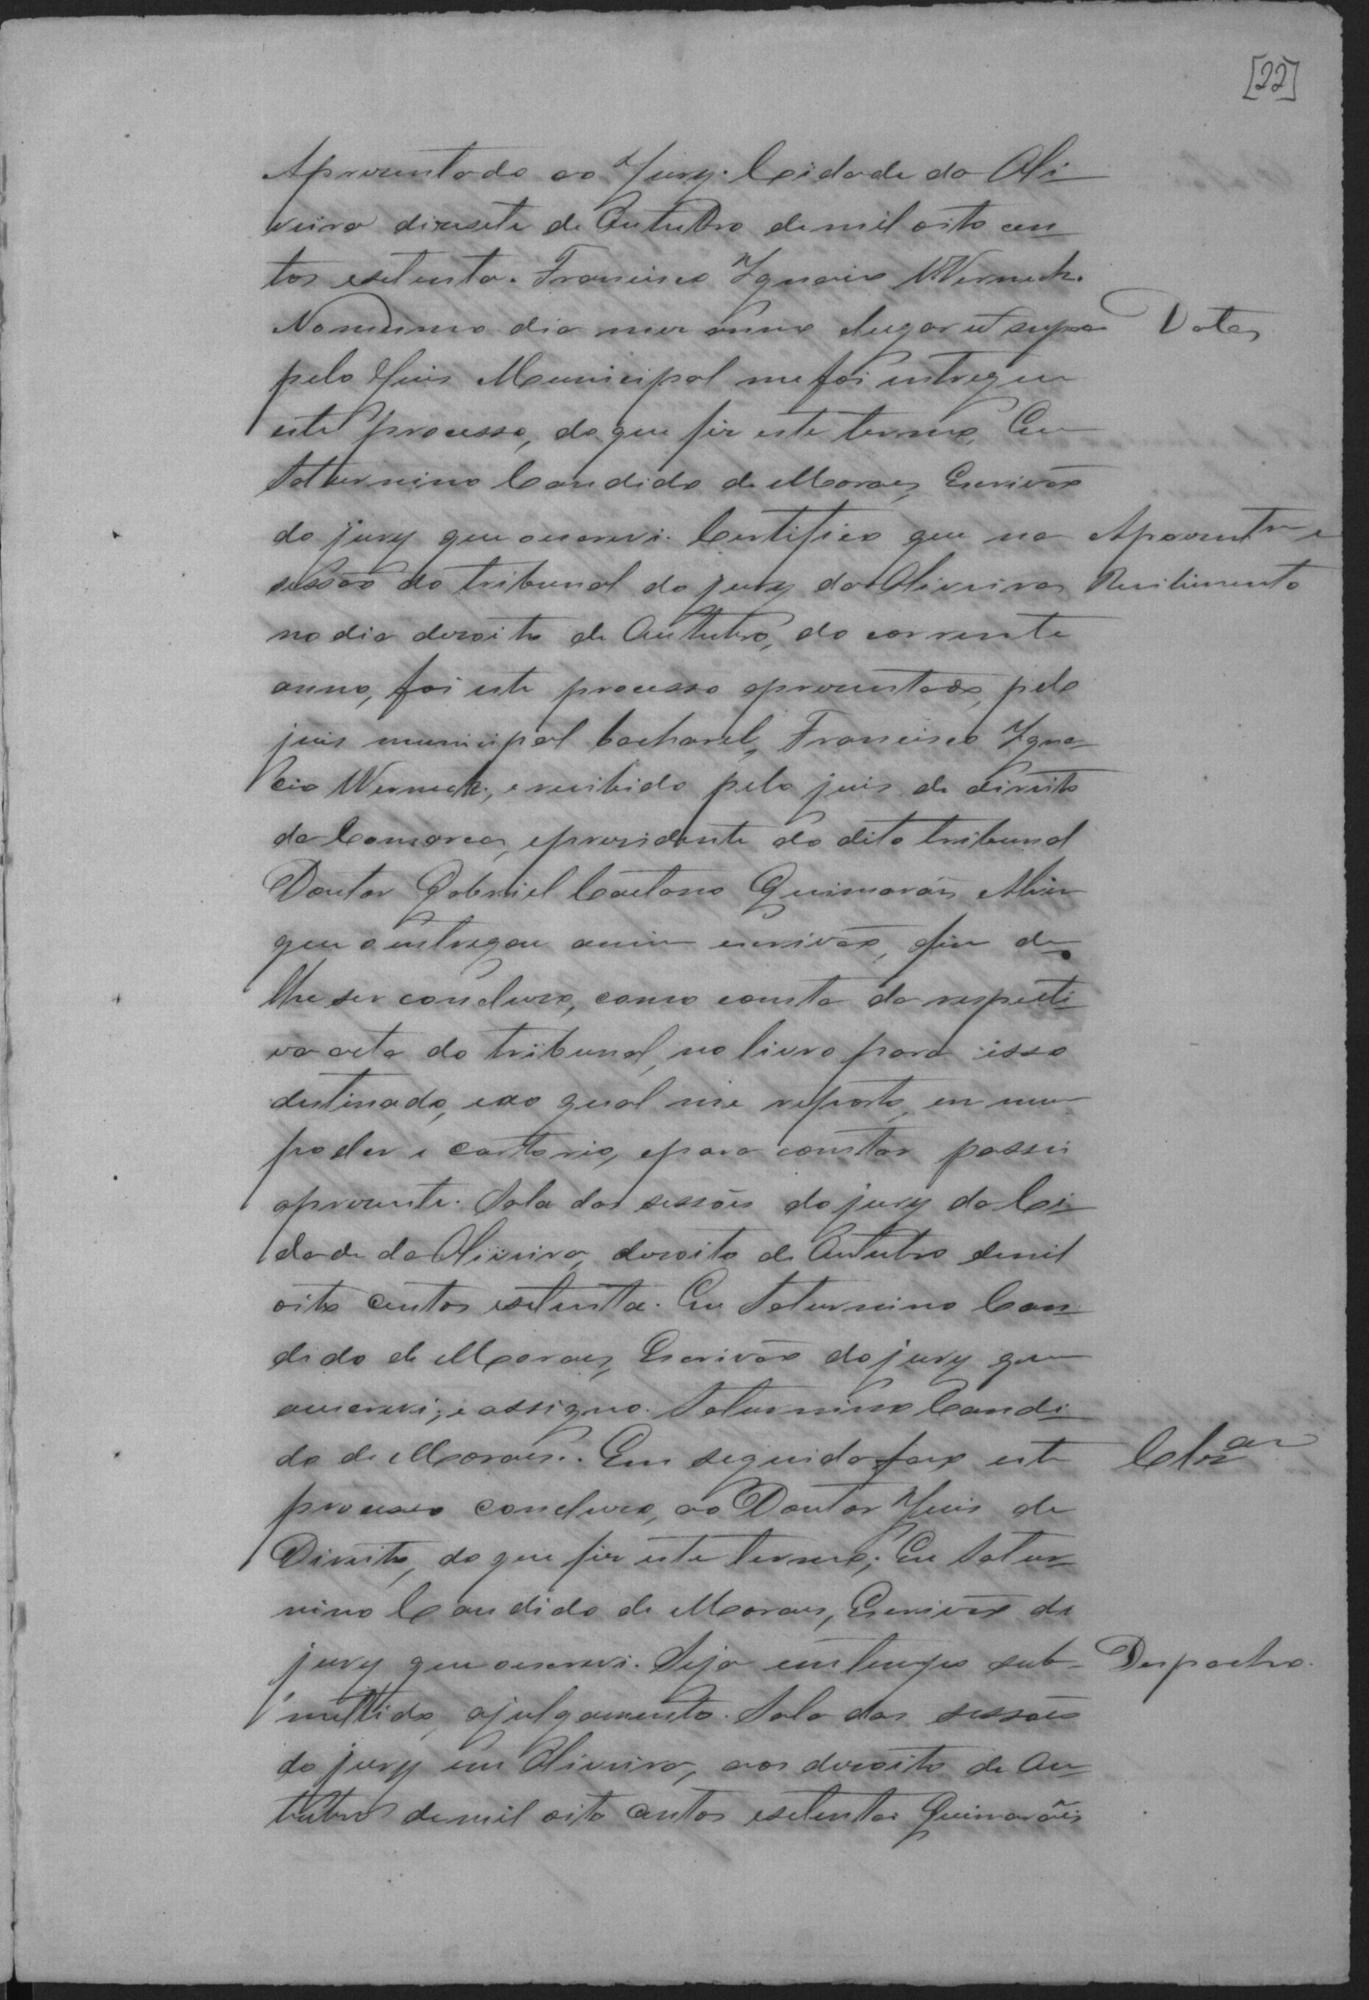 [22]
Apresentado ao Jury. Cidade da Oli-
veira desesete de Outubro de mil oito cen
tos esetenta. Francisco Ignacio Werneck.
No mesmo dia mez anno elugar ut supra Data
pelo Juis Municipal me foi entregue
este processo, do que fiz este termo, Eu
Saturnino Candido de Moraes, Escrivão
do jury que oescrevi. Certifico que na Apresentam e
sessão do tribunal do jury da Oliveira Recebimento
no dia desoito de Outubro, do corrente
anno, foi este processo apresentado, pelo
juis municipal bacharel, Francisco Igna-
cio Werneck, e recebido pelo juis de direito
da Comarca, epresidente do dito tribunal
Doutor Gabriel Caetano Guimarães
que o entregou amim escrivão, afim de
lhe ser concluso, como consta da respecti
va acta do tribunal, no livro para isso
destinado, eao qual me reporto, em meu
poder e cartorio, epara constar passei
apresente. Sala das sessões do jury da Ci-
dade da Oliveira, desoito de Outubro demil
oito centos esetenta. Eu Saturnino Can
dido de Moraes, Escrivão do jury que
oescrevi, e assigno. Saturnino Candi-
do de Moraes. Em seguida faço este Clsam
processo concluso, ao Doutor Juis de
Direito, do que fiz este termo; Eu Satur-
nino Candido de Moraes, Escrivão do
jury que oescrevi. Seja em tempo sub- Despacho.
mettido, ajulgamento. Sala das sessões
do jury em Oliveira, aos desoito de Ou-
tubro demil oito centos esetenta. Guimarães